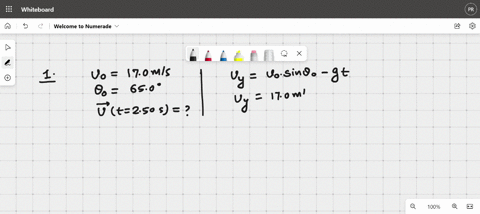 Whiteboard
PR
Welcome to Numerade
1.
v₀ = 17.0 m/s
θ₀ = 65.0°
v⃗ (t=2.50 s) = ?
v_y = v₀.sinθ₀ - gt
v_y = 17.0 m'
100%